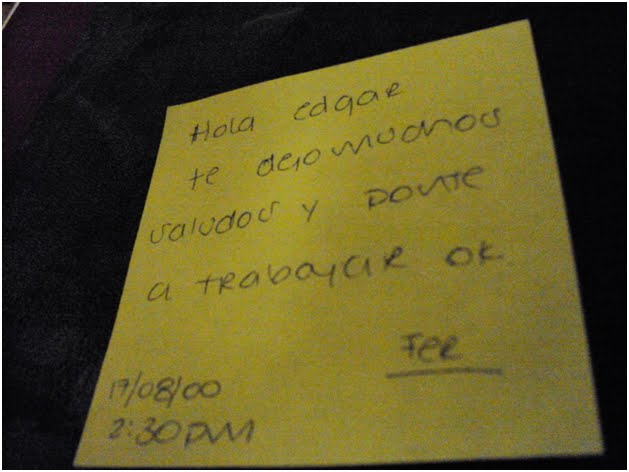 Hola edgar
te dejo muchos
saludos y ponte
a trabajar ok.
Fer
17/08/00
2:30 PM